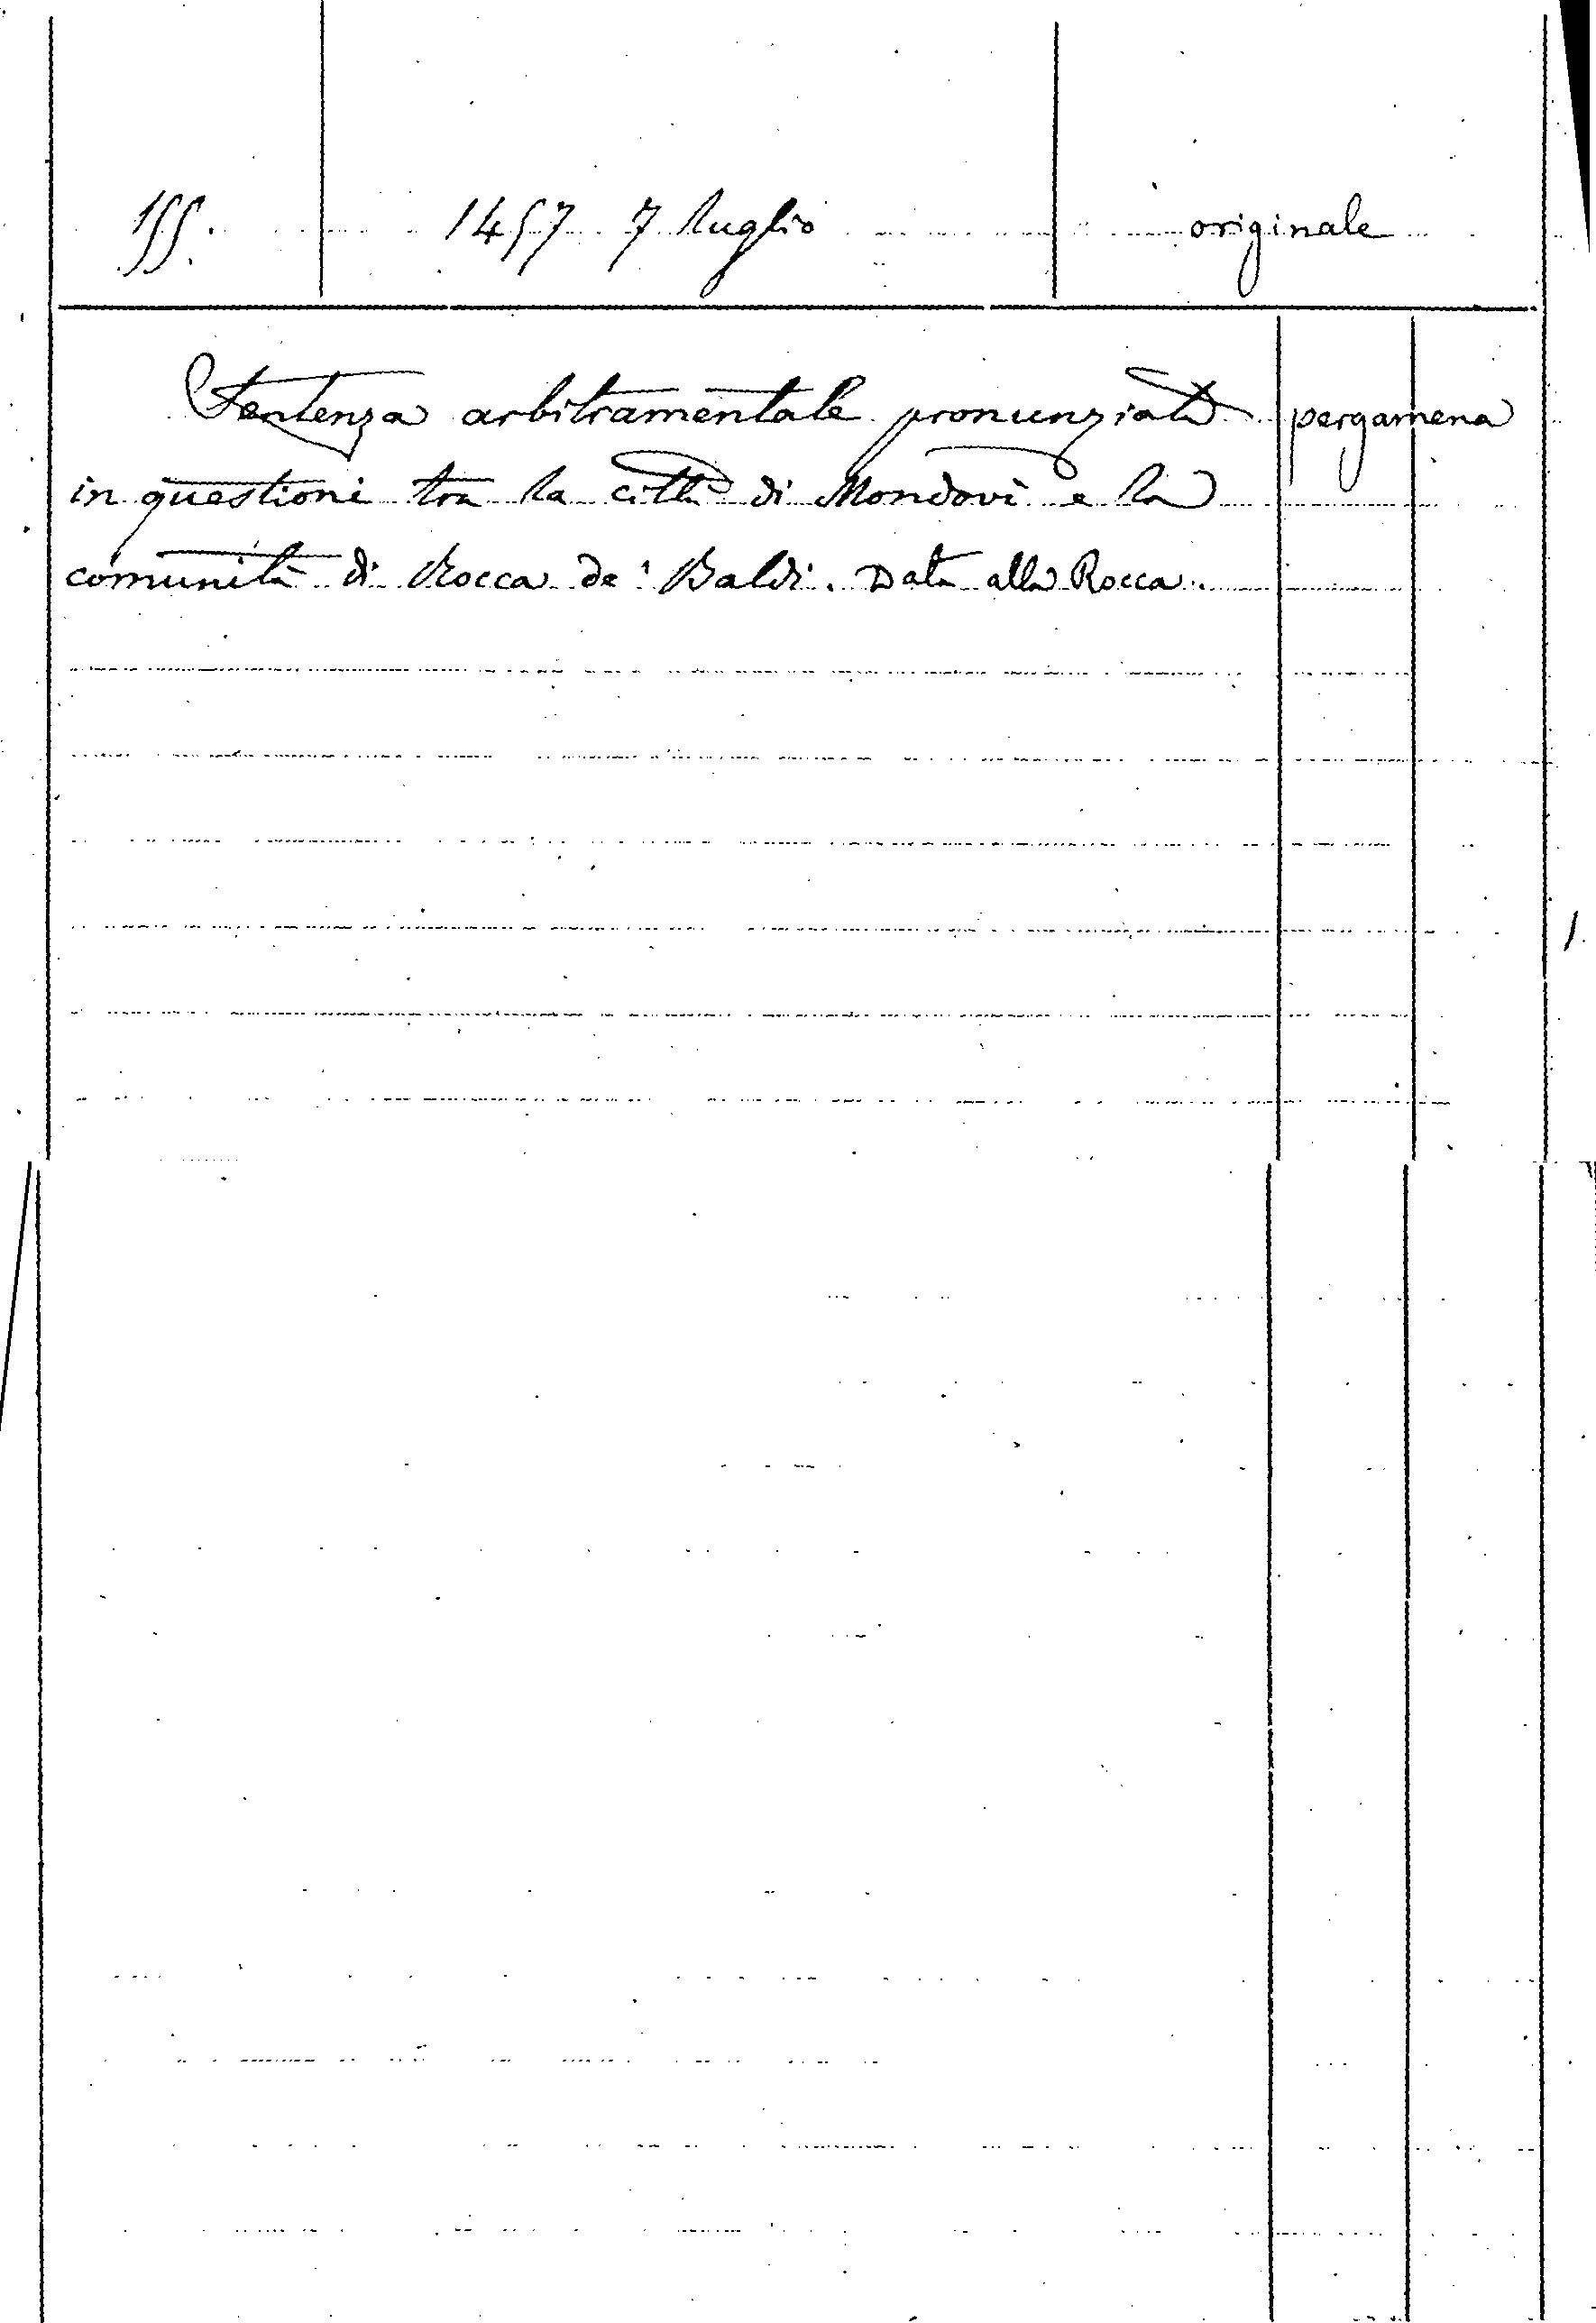 155. 1457 7 luglio originale
Sentenza arbitramentale pronunziata pergamena
in questioni tra la città di Mondovì e la
comunità di Rocca de' Baldi. Data alla Rocca.